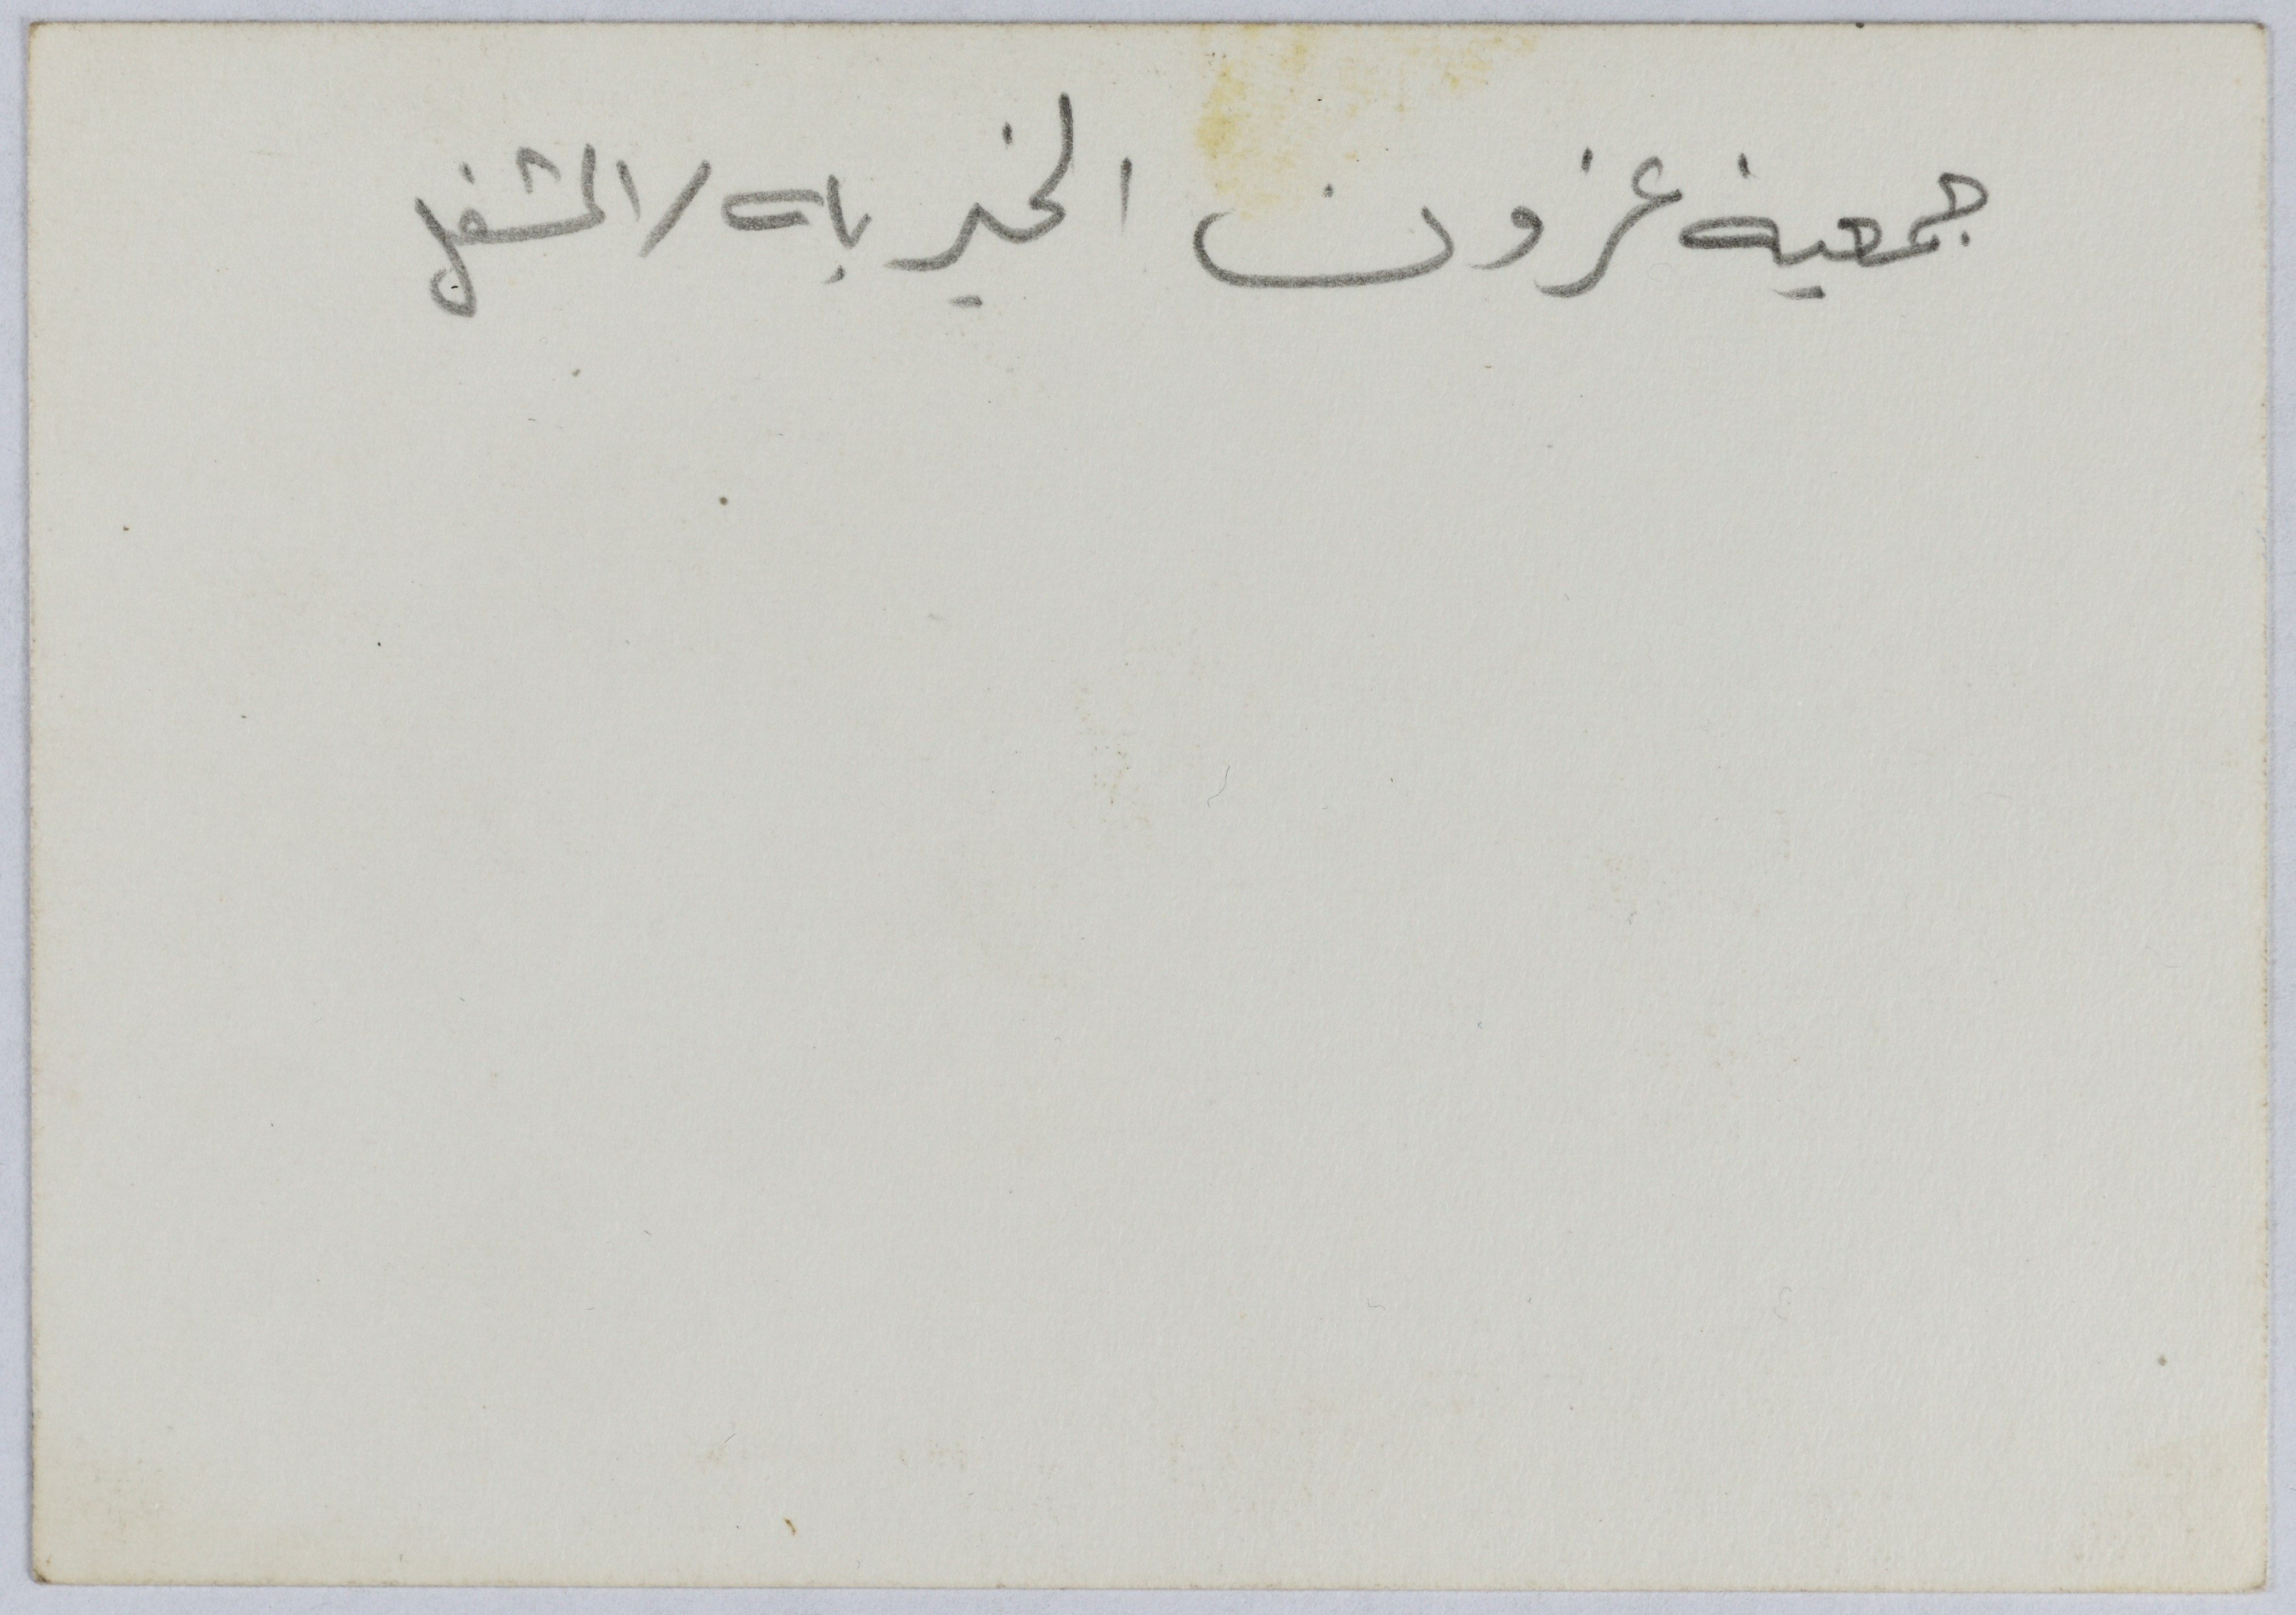 جمعية عزون الخيرية / المشغل